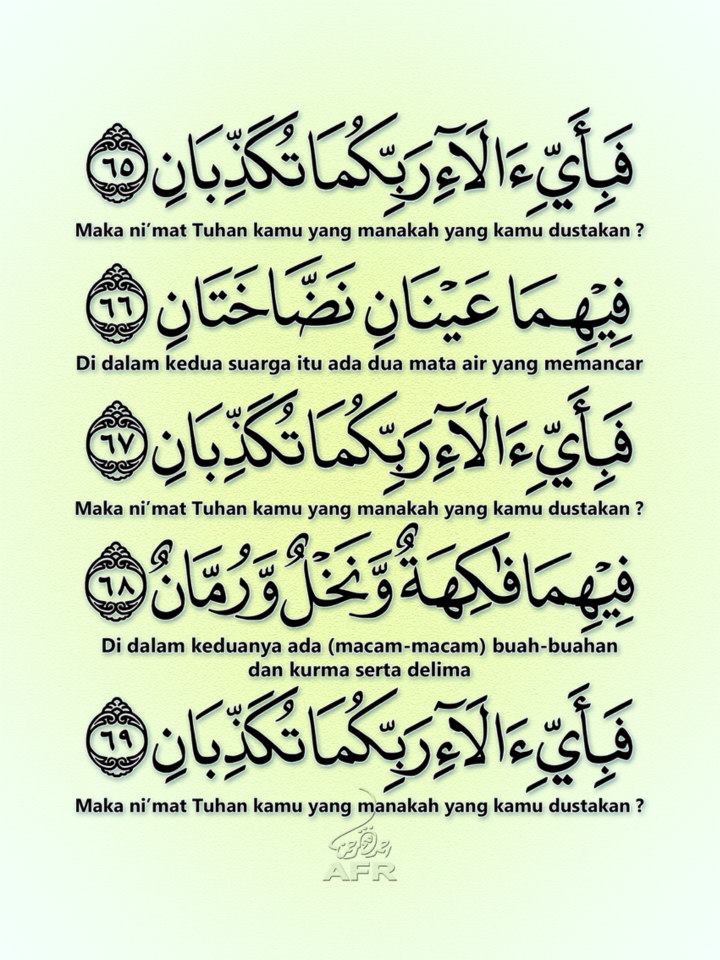 فَبِأَيِّ ءَالَآءِ رَبِّكُمَا تُكَذِّبَانِ ٦٥
Maka ni'mat Tuhan kamu yang manakah yang kamu dustakan ?
فِيهِمَا عَيْنَانِ نَضَّاخَتَانِ ٦٦
Di dalam kedua suarga itu ada dua mata air yang memancar
فَبِأَيِّ ءَالَآءِ رَبِّكُمَا تُكَذِّبَانِ ٦٧
Maka ni'mat Tuhan kamu yang manakah yang kamu dustakan ?
فِيهِمَا فَٰكِهَةٌ وَنَخْلٌ وَرُمَّانٌ ٦٨
Di dalam keduanya ada (macam-macam) buah-buahan
dan kurma serta delima
فَبِأَيِّ ءَالَآءِ رَبِّكُمَا تُكَذِّبَانِ ٦٩
Maka ni'mat Tuhan kamu yang manakah yang kamu dustakan ?
AFR